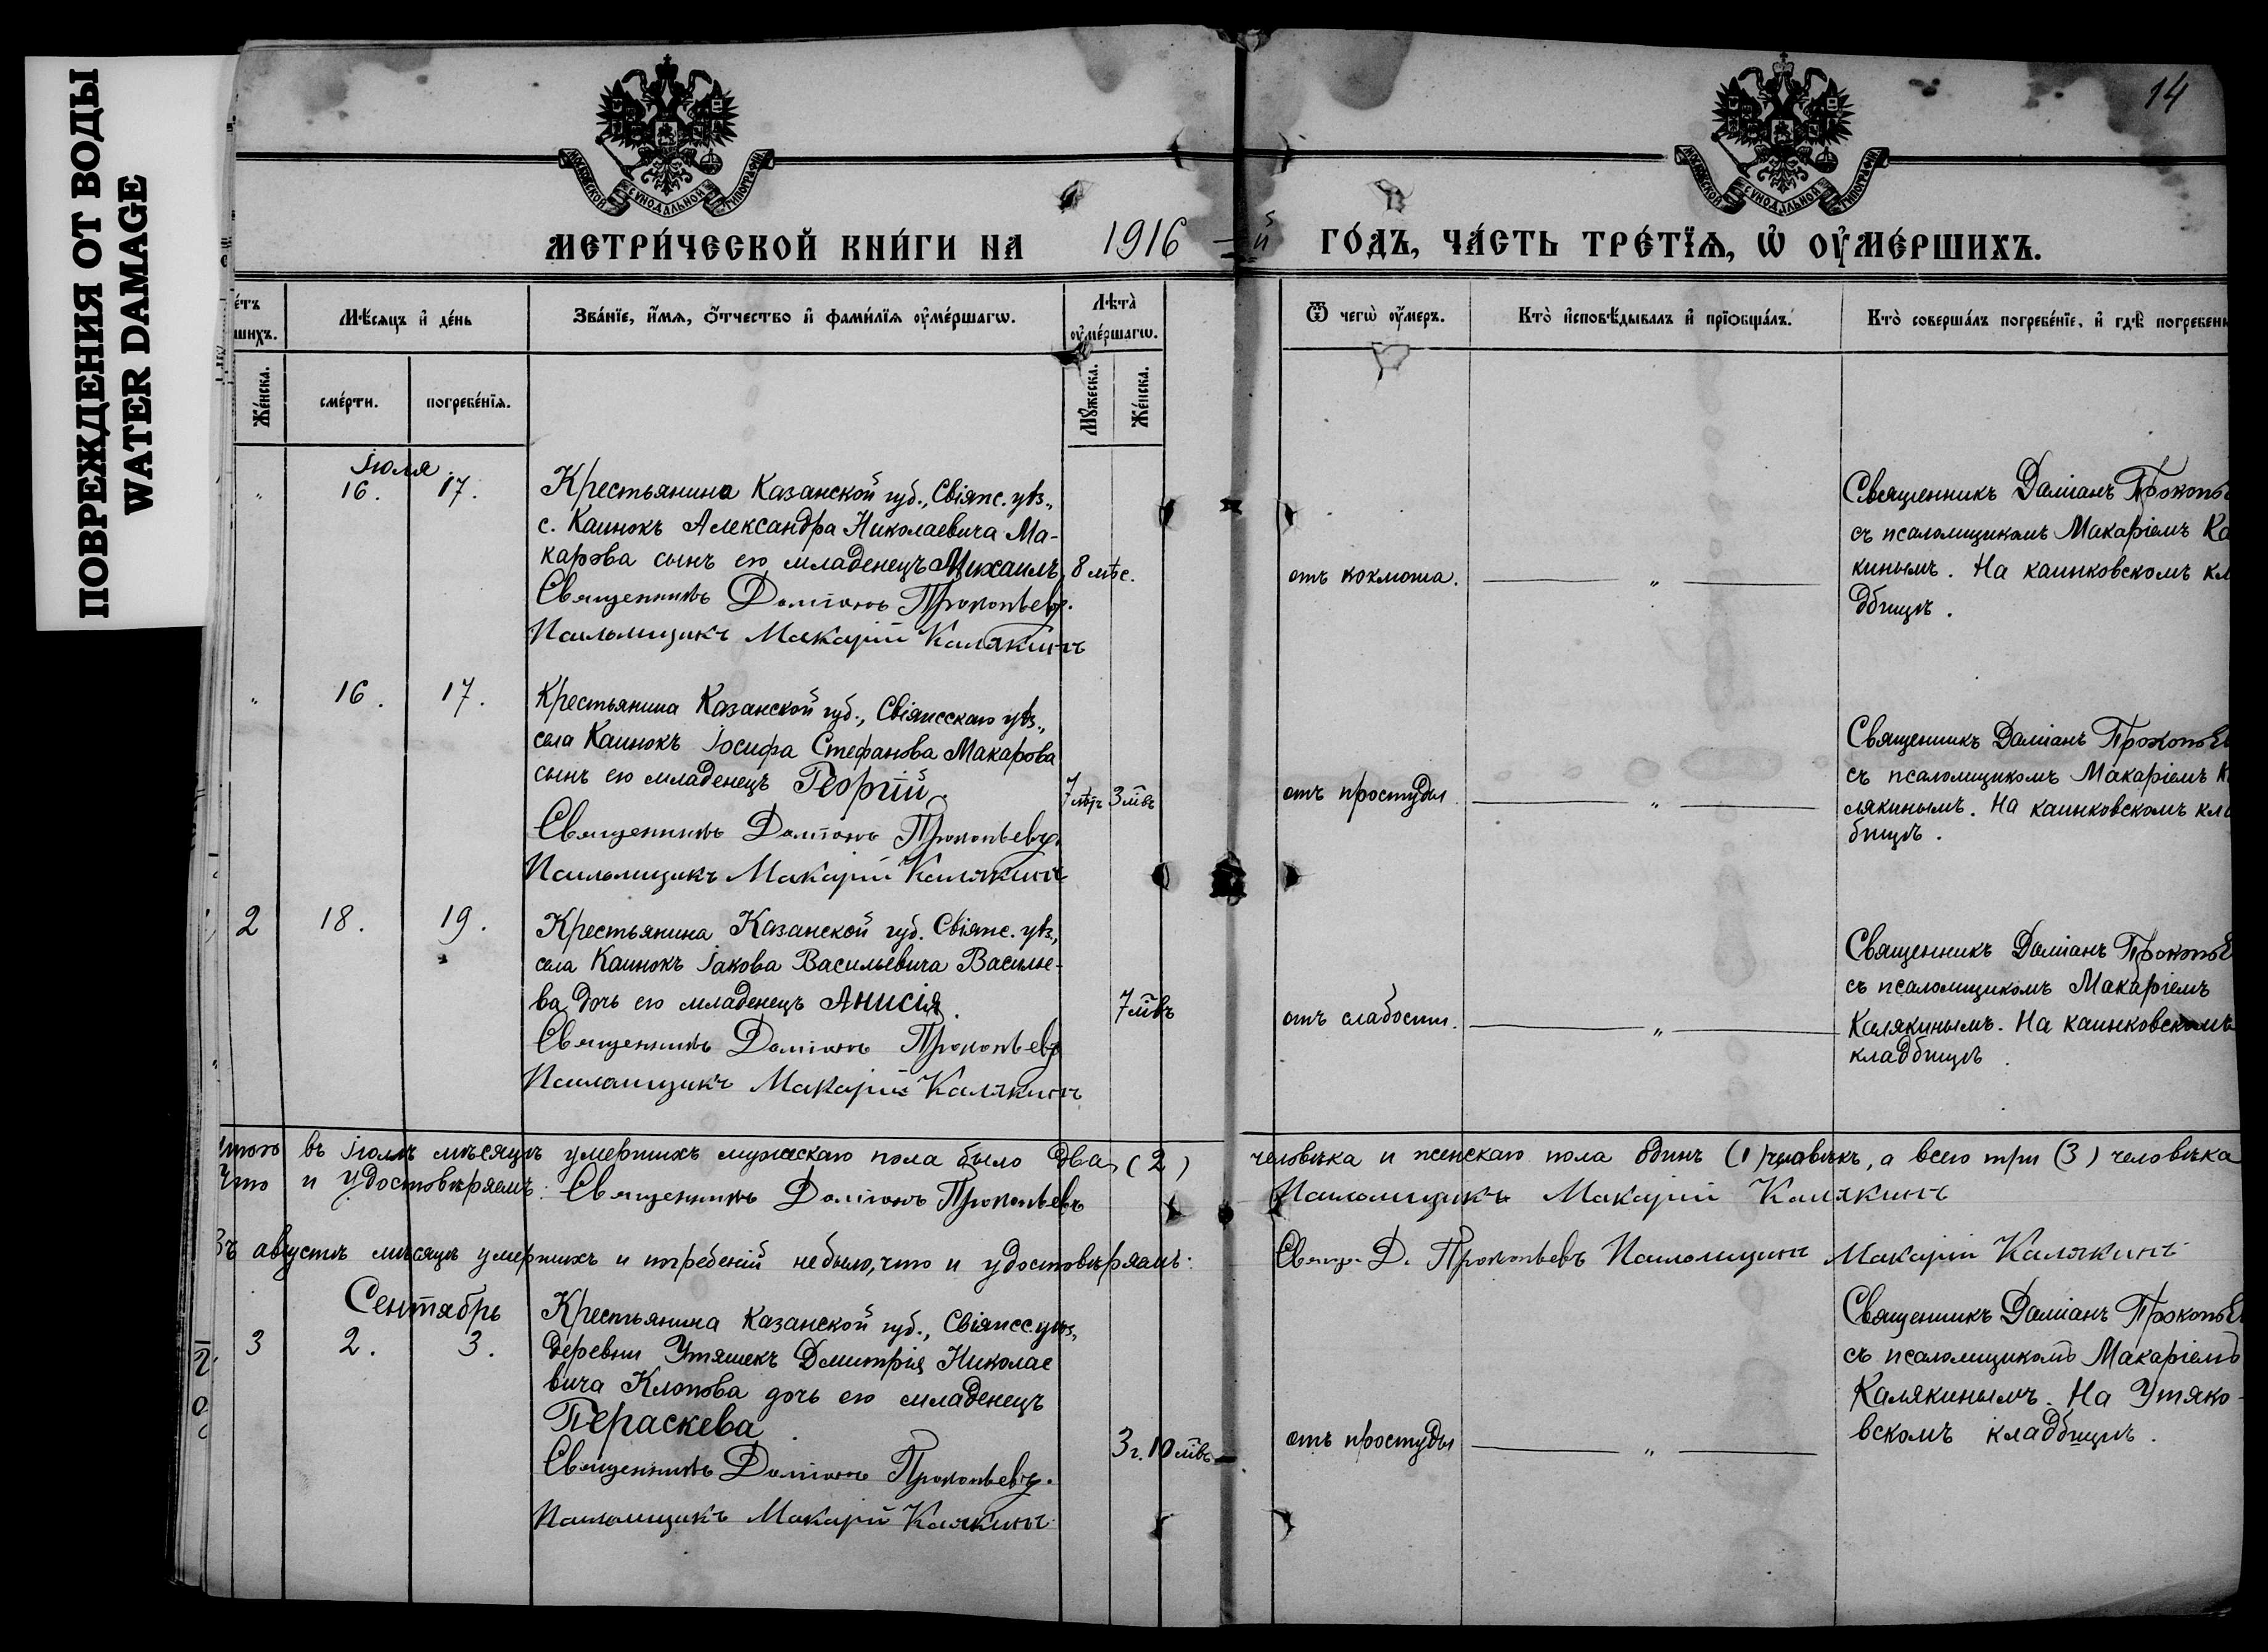 ПОВРЕЖДЕНИЯ ОТ ВОДЫ
WATER DAMAGE
14
МОСКОВСКОЙ СѴНОДАЛЬНОЙ ТИПОГРАФІИ
МОСКОВСКОЙ СѴНОДАЛЬНОЙ ТИПОГРАФІИ
МЕТРИ́ЧЕСКОЙ КНИ́ГИ НА 1916 – й ГО́ДЪ, ЧА́СТЬ ТРЕ́ТЇѦ, Ѡ҆ ОУ҆МЕ́РШИХЪ.
Мѣ́сяцъ и҆ де́нь
Зва́нїе, и҆́мѧ, ѻ҆́тчество и҆ фами́лїѧ оу҆ме́ршагѡ.
Лѣта̀
оу҆ме́ршагѡ.
Ѿ чегѡ̀ оу҆́меръ.
Кто̀ и҆сповѣ́дывалъ и҆ прїѻбща́лъ.
Кто̀ соверша́лъ погребе́нїе, и҆ гдѣ̀ погребены
Же́нска.
сме́рти.
погребе́нїѧ.
Мꙋ́жеска.
Же́нска.
Іюля
" 16. 17.
Крестьянина Казанской губ., Свіяжс. уѣз.,
с. Каинокъ Александра Николаевича Ма-
карова сынъ его младенецъ Михаилъ
8 мѣс.
Священникъ Даміанъ Прокопьевъ.
Псаломщикъ Макарій Калякинъ
отъ кохлюша.
"
Священникъ Даміанъ Прокопь
съ псаломщикомъ Макаріемъ Ка
кинымъ. На каинковскомъ кла
дбищѣ.
" 16. 17.
Крестьянина Казанской губ., Свіяжскаго уѣз.,
села Каинокъ Іосифа Стефанова Макарова
сынъ его младенецъ Георгій.
7 лѣтъ 3 м̃въ
Священникъ Даміанъ Прокопьевъ.
Псаломщикъ Макарій Калякинъ
отъ простуды.
"
Священникъ Даміанъ Прокопьев
съ псаломщикомъ Макаріемъ Ка
лякинымъ. На каинковскомъ кла
бищѣ.
2 18. 19.
Крестьянина Казанской губ. Свіяжс. уѣз.,
села Каинокъ Іакова Васильевича Василье-
ва дочь его младенецъ Анисія.
7 м̃въ
Священникъ Даміанъ Прокопьевъ
Псаломщикъ Макарій Калякинъ
отъ слабости.
"
Священникъ Даміанъ Прокопье
съ псаломщикомъ Макаріемъ
Калякинымъ. На каинковскомъ
кладбищѣ.
Итого въ Іюлѣ мѣсяцѣ умершихъ мужескаго пола было два (2) человѣка и женскаго пола одинъ (1) человѣкъ, а всего три (3) человѣка
Что и удостовѣряемъ: Священникъ Даміанъ Прокопьевъ Псаломщикъ Макарій Калякинъ
Въ августѣ мѣсяцѣ умершихъ и погребеній не было, что и удостовѣряемъ: Свящ. Д. Прокопьевъ Псаломщикъ Макарій Калякинъ
Сентябрь
3 2. 3.
Крестьянина Казанской губ., Свіяжс. уѣз.,
деревни Утяшекъ Дмитрія Николае
вича Клопова дочь его младенецъ
Пераскева.
3 г. 10 м̃въ
Священникъ Даміанъ Прокопьевъ.
Псаломщикъ Макарій Калякинъ
отъ простуды
"
Священникъ Даміанъ Прокопье
съ псаломщикомъ Макаріемъ
Калякинымъ. На Утяко-
вскомъ кладбищѣ.